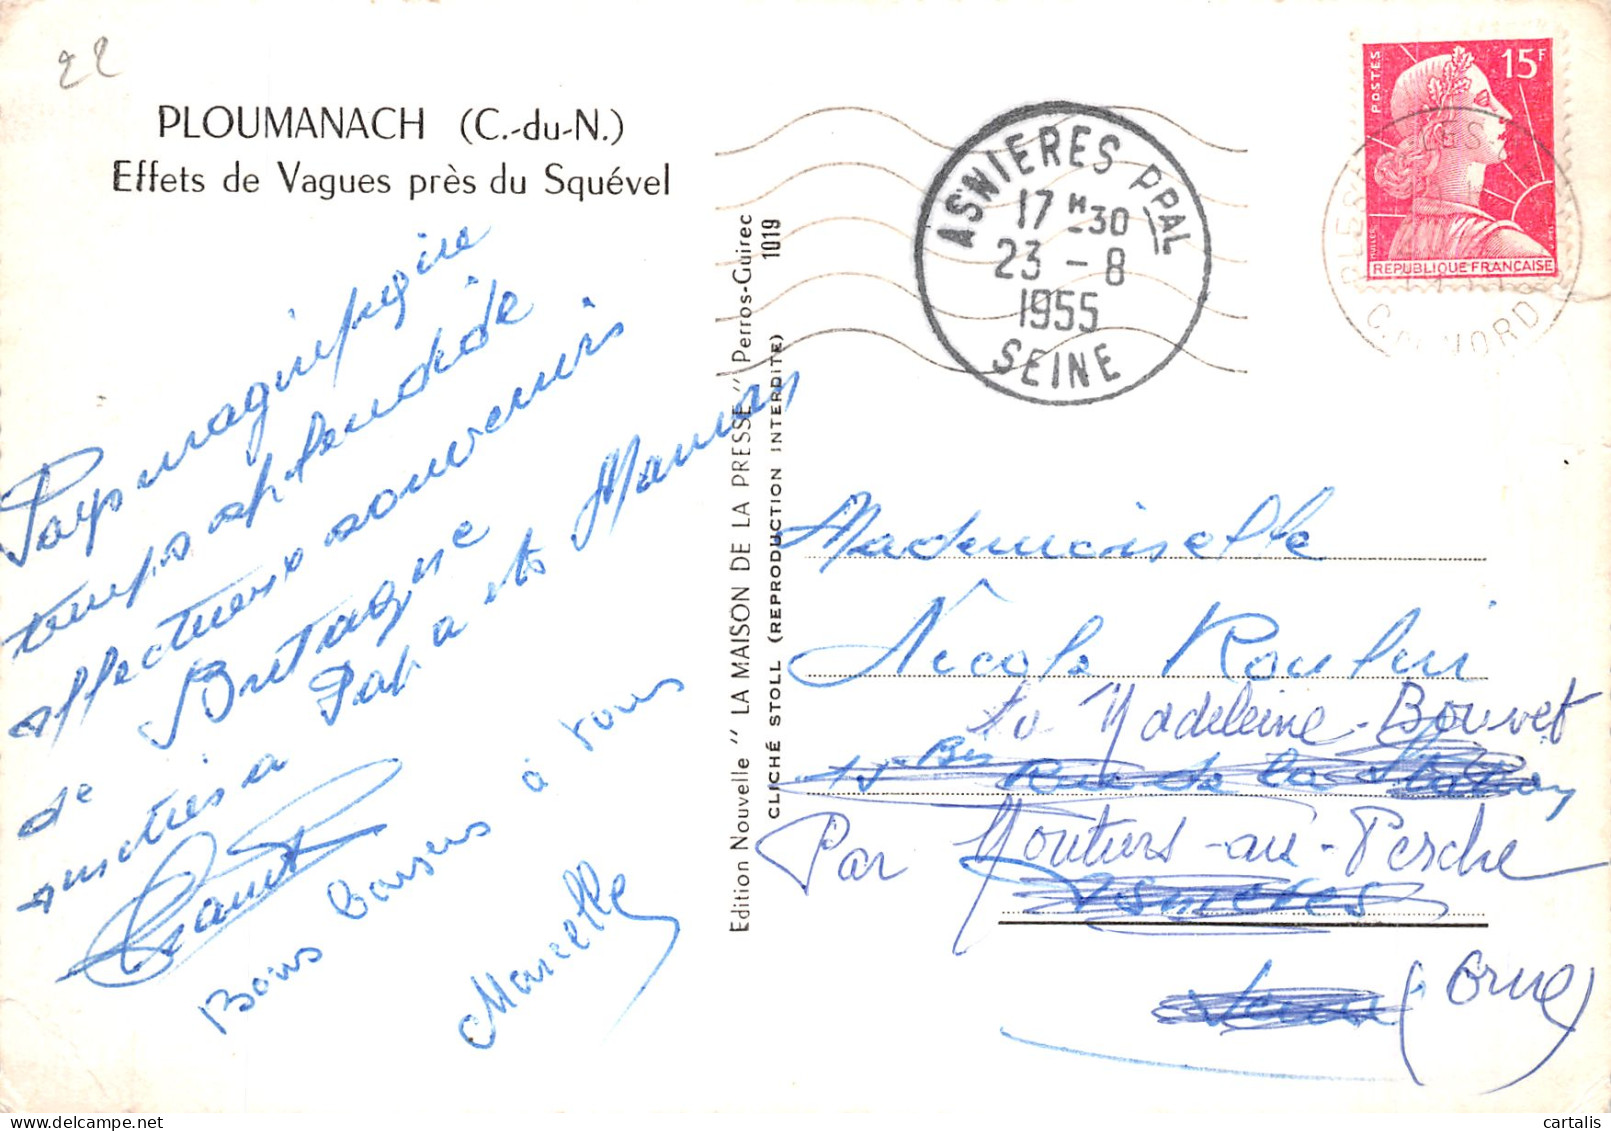 22
PLOUMANACH (C.-du-N.)
Effets de Vagues près du Squével
Pays magnifique
temps splendide
affectueux souvenirs
de Bretagne
amitiés à Papa et Maman
Bons baisers à tous
Marcelle
Edition Nouvelle " LA MAISON DE LA PRESSE " Perros-Guirec
CLICHÉ STOLL (REPRODUCTION INTERDITE) 1019
ASNIERES PPAL
17 H 30
23 - 8
1955
SEINE
POSTES
15F
MULLER
REPUBLIQUE FRANÇAISE
C. DU NORD
Mademoiselle
Nicole Roulin
La Madeleine-Bouvet
Bis Rue de la Station
Par Moutiers-au-Perche
Asnieres
Seine (Orne)
cartalis